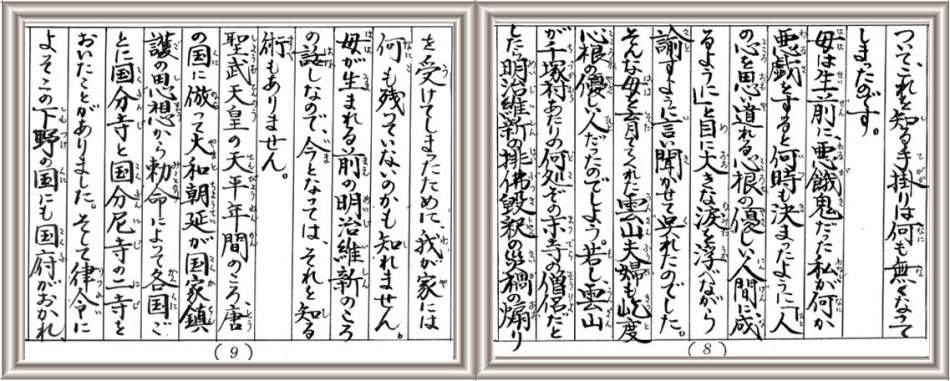 ついて、これを知る手掛りは何も無くなって
しまったのです。
母は生前に悪餓鬼だった私が何か
悪戯をすると何時も決まったように「人
の心を思い遣れる心根の優しい人間に成
るように」と目に大きな涙を浮ながら
諭すように言い聞かせて呉れたのでした。
そんな母を育てくれた雲山夫婦も屹度
心根の優しい人だったのでしよう。若し、雲山
が千塚村あたりの何処ぞの末寺の僧侶だと
した明治維新の排佛毀釈の災禍の煽り
(8)
を受けてしまったために、我が家には
何も残っていないのかも知れません。
母が生まれる前の明治維新のころ
の話しなので、今となっては、それを知る
術もありません。
聖武天皇の天平年間のころ、唐
の国に倣って大和朝廷が国家鎮
護の思想から勅命によって各国ご
とに国分寺と国分尼寺の二寺を
おいたことがありました。そして律令に
よそこの下野の国にも国府がおかれ、
(9)